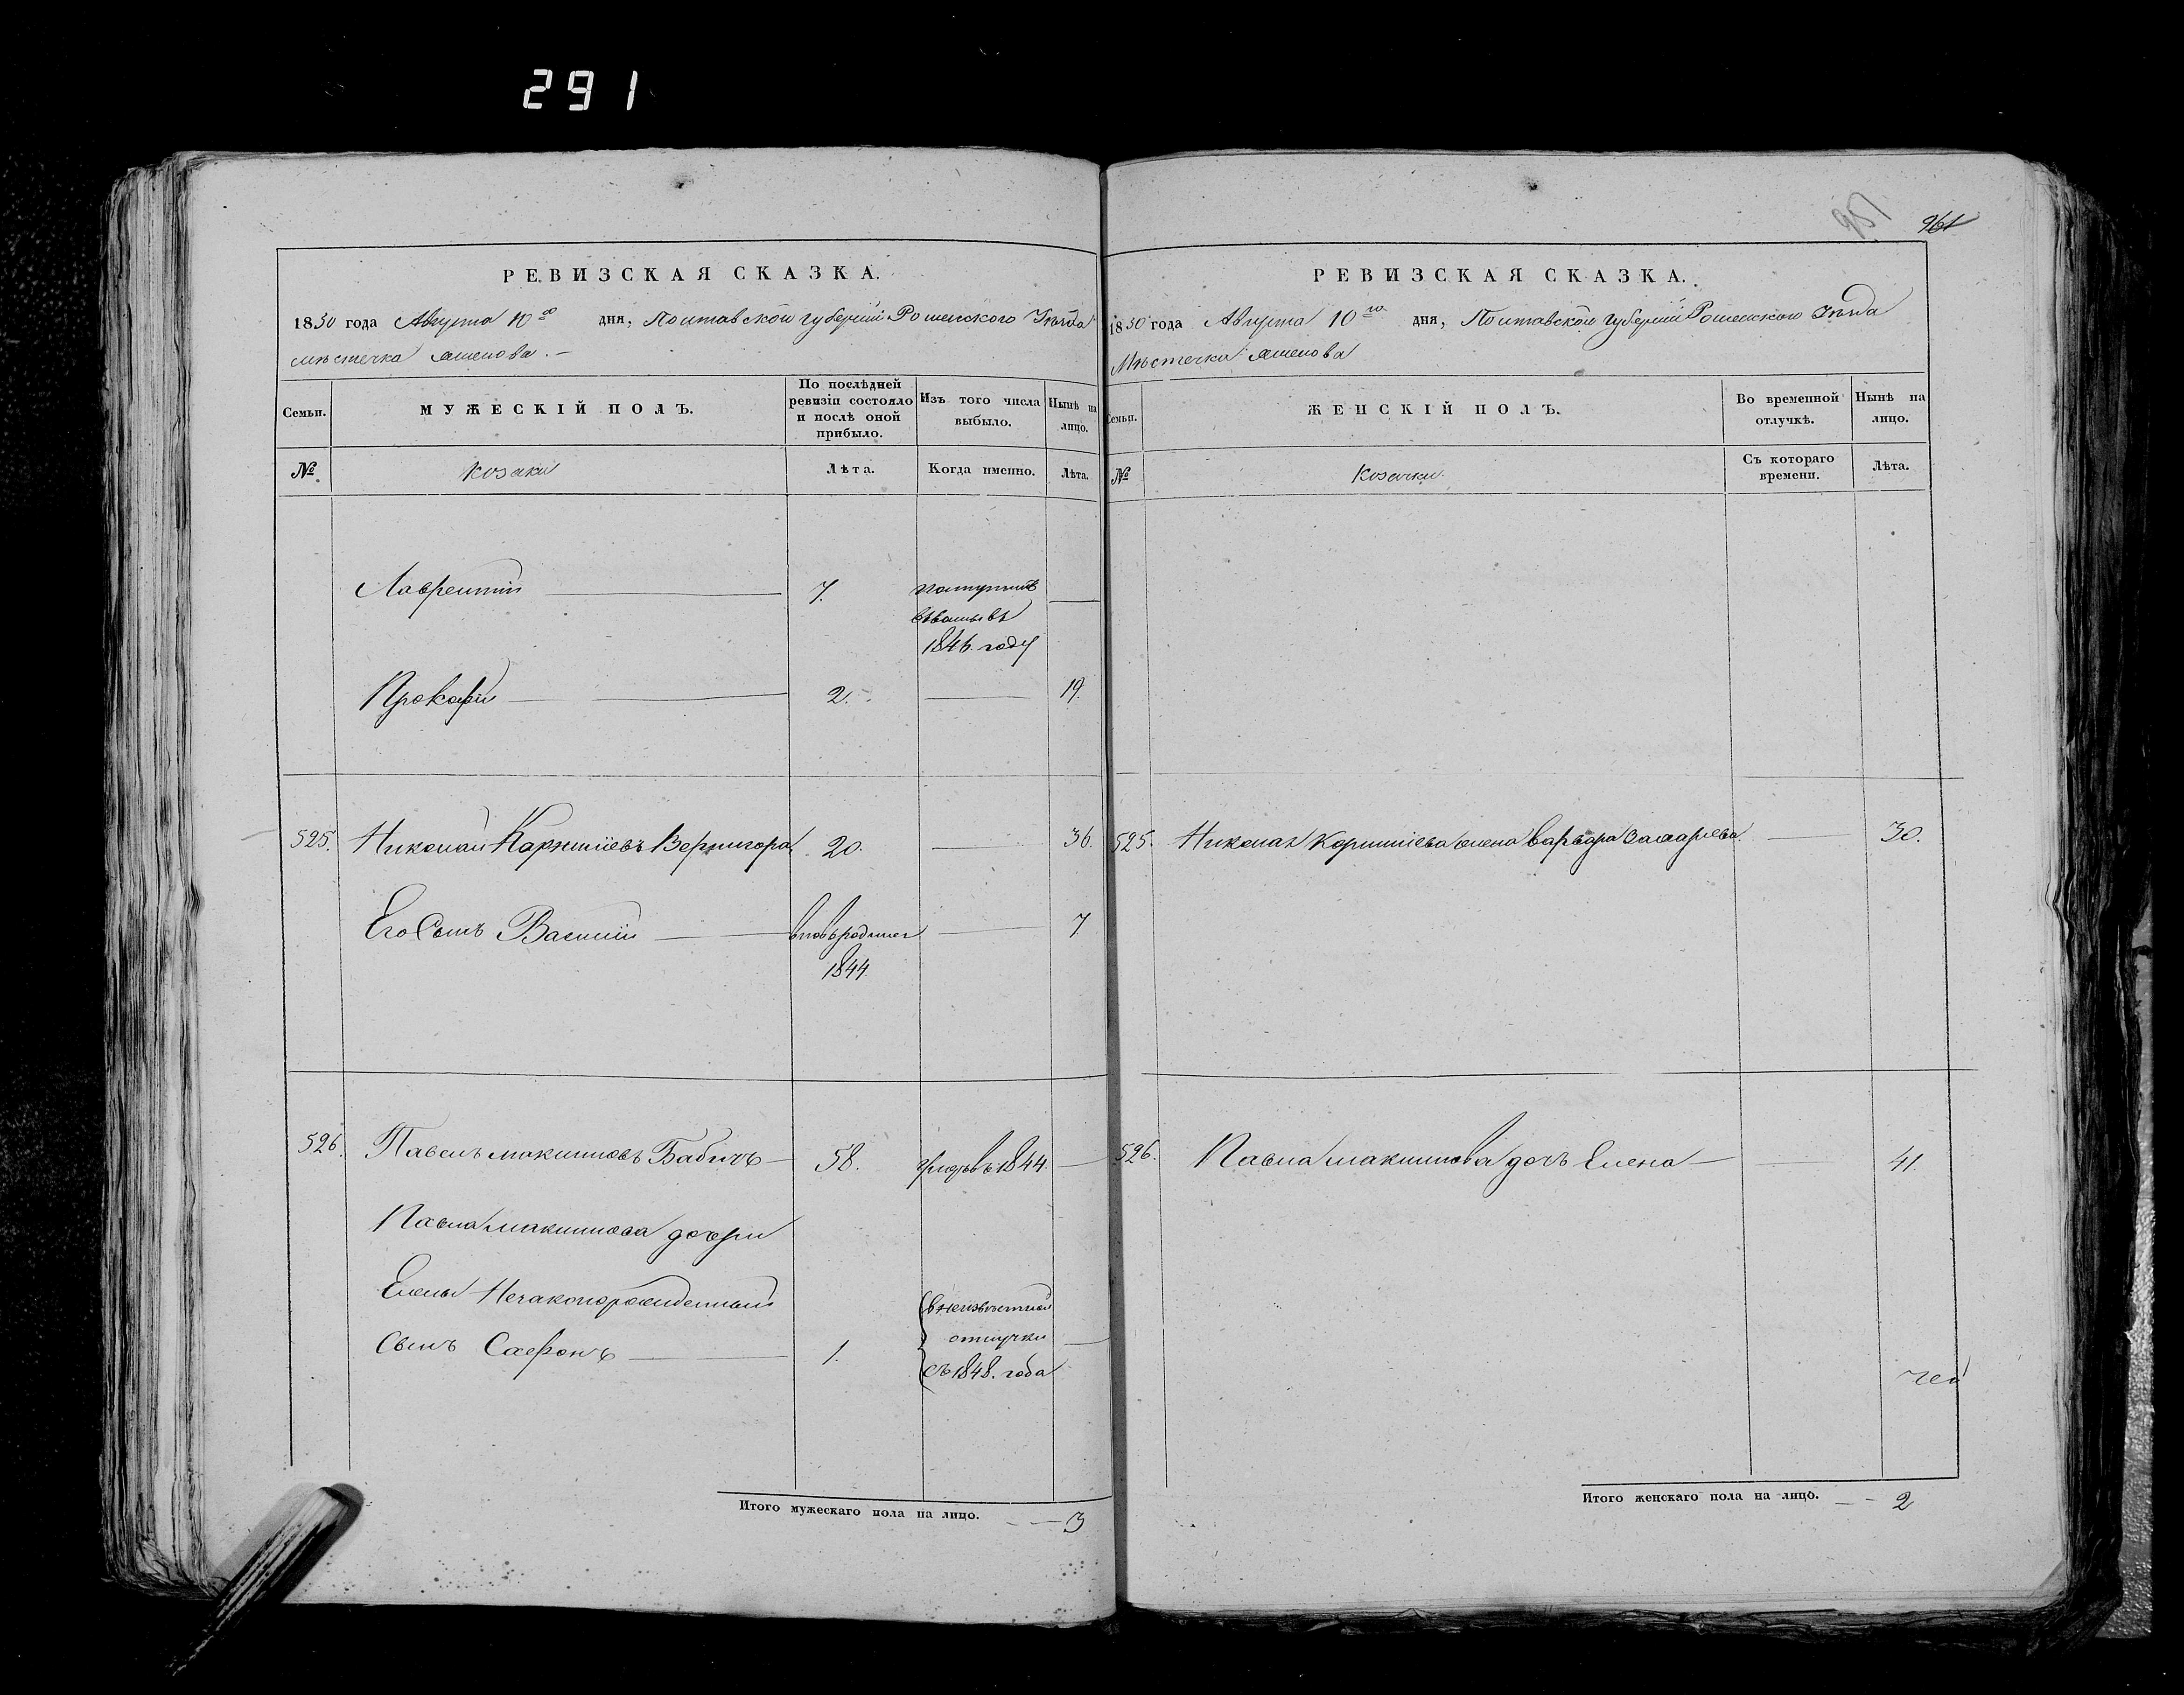 291
951 961
РЕВИЗСКАЯ СКАЗКА.
1850 года Августа 10го дня, Полтавской губерніи Роменского Уѣзда
мѣстечка
Семьи. МУЖЕСКІЙ ПОЛЪ. По послѣдней ревизіи состояло и послѣ оной прибыло. Изъ того числа выбыло. Нынѣ на лицо.
№ Козаки Лѣта. Когда именно. Лѣта.
Лаврентій 7. поступилъ
1846 году
Прокофій 2. 19.
525. Николай Вернигора 20. 36.
Его Сынъ Василій вновьродился 7
1844
526. Павелъ Максимовъ Бабичъ 58. 1844
Павла Максимова дочери
Елены Незаконорожденный
Сынъ Сафронъ 1. в неизвѣстной
отлучки
съ 1848. года
Итого мужескаго пола на лицо. 3
РЕВИЗСКАЯ СКАЗКА.
1850 года Августа 10го дня, Полтавской Губерніи Роменского Уѣзда
Мѣстечка
Семьи. ЖЕНСКІЙ ПОЛЪ. Во временной отлучкѣ. Нынѣ на лицо.
№ Козачки Съ котораго времени. Лѣта.
525. Николая жена Варвара 30.
526. Павла Максимова дочь Елена 41.
Итого женскаго пола на лицо. 2